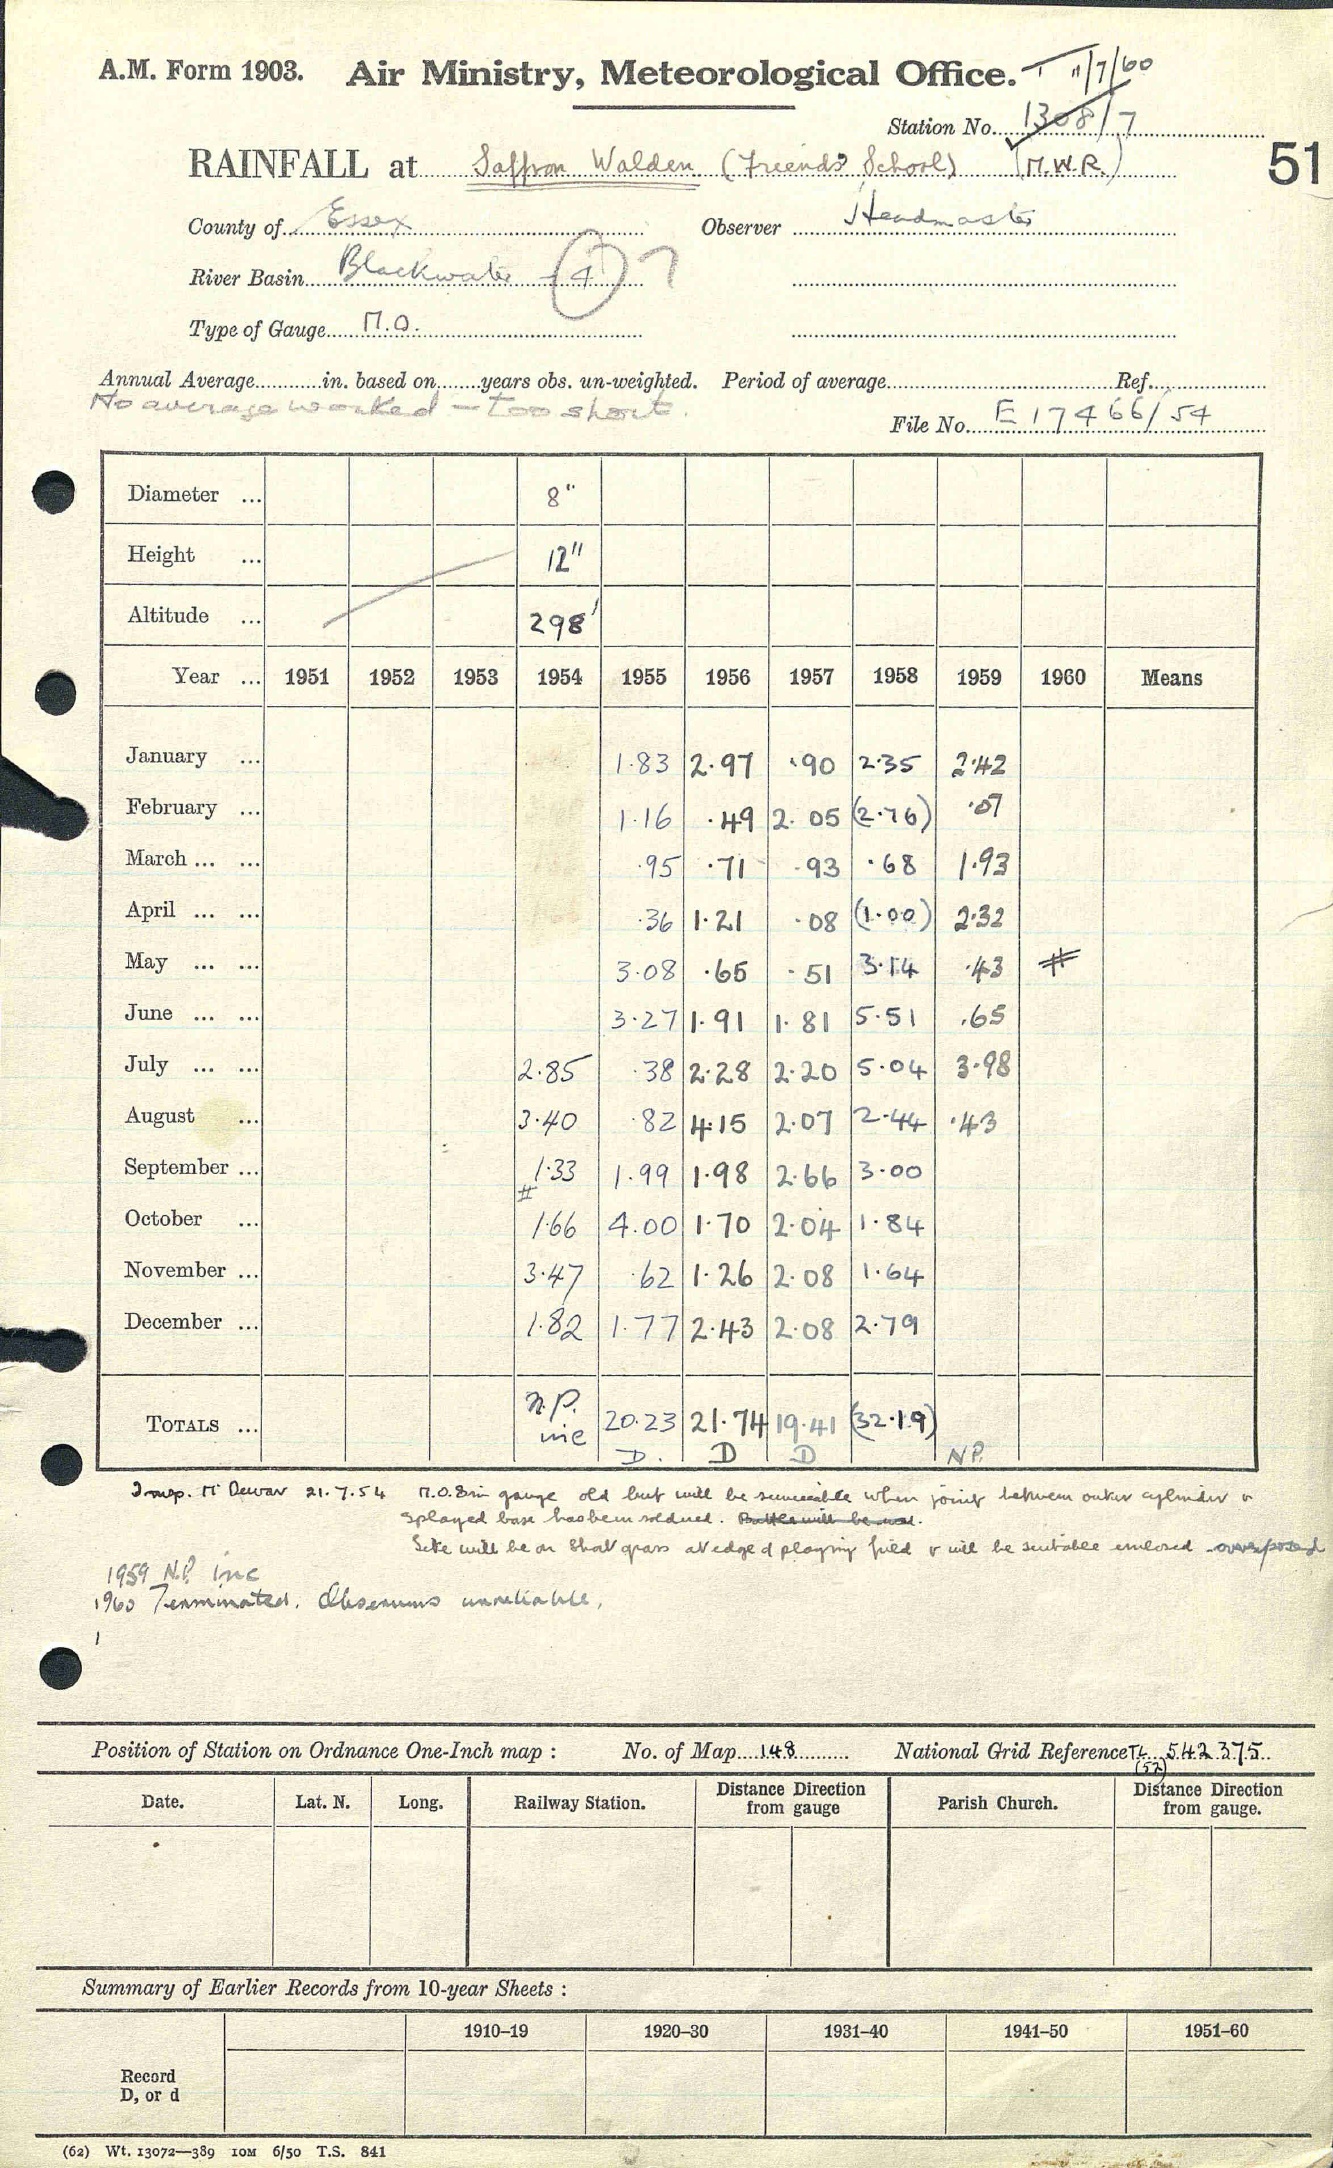 A.M. Form 1903. Air Ministry, Meteorological Office. T 11/7/60
Station No. 1308/7
RAINFALL at Saffron Walden (Friends' School) (M.W.R.) 51
County of Essex Observer Headmaster
River Basin Blackwater 4 7
Type of Gauge M.O.
Annual Average in. based on years obs. un-weighted. Period of average Ref.
No average worked - too short.
File No. E 17466/54
Diameter ... 8"
Height ... 12"
Altitude ... 298'
Year ... 1951 1952 1953 1954 1955 1956 1957 1958 1959 1960 Means
January ... 1.83 2.97 .90 2.35 2.42
February ... 1.16 .49 2.05 (2.76) .07
March ... ... .95 .71 .93 .68 1.93
April ... ... .36 1.21 .08 (1.00) 2.32
May ... ... 3.08 .65 .51 3.14 .43 #
June ... ... 3.27 1.91 1.81 5.51 .65
July ... ... 2.85 .38 2.28 2.20 5.04 3.98
August ... 3.40 .82 4.15 2.07 2.44 .43
September ... 1.33 1.99 1.98 2.66 3.00
#
October ... 1.66 4.00 1.70 2.04 1.84
November ... 3.47 .62 1.26 2.08 1.64
December ... 1.82 1.77 2.43 2.08 2.79
TOTALS ... N.P. inc 20.23 21.74 19.41 (32.19)
D. D D NP.
Insp. Mr Dewar 21.7.54 M.O. 8in gauge old but will be serviceable when joint between outer cylinder &
splayed base has been soldered. Bottle will be used.
Site will be on short grass at edge of playing field & will be suitable enclosed overexposed
1959 N.P. inc
1960 Terminated. Observers unreliable.
1
Position of Station on Ordnance One-Inch map : No. of Map 148 National Grid Reference TL 542 375
(52)
Date. Lat. N. Long. Railway Station. Distance Direction from gauge Parish Church. Distance Direction from gauge.
Summary of Earlier Records from 10-year Sheets :
1910–19 1920–30 1931–40 1941–50 1951–60
Record
D, or d
(62) Wt. 13072—389 10M 6/50 T.S. 841